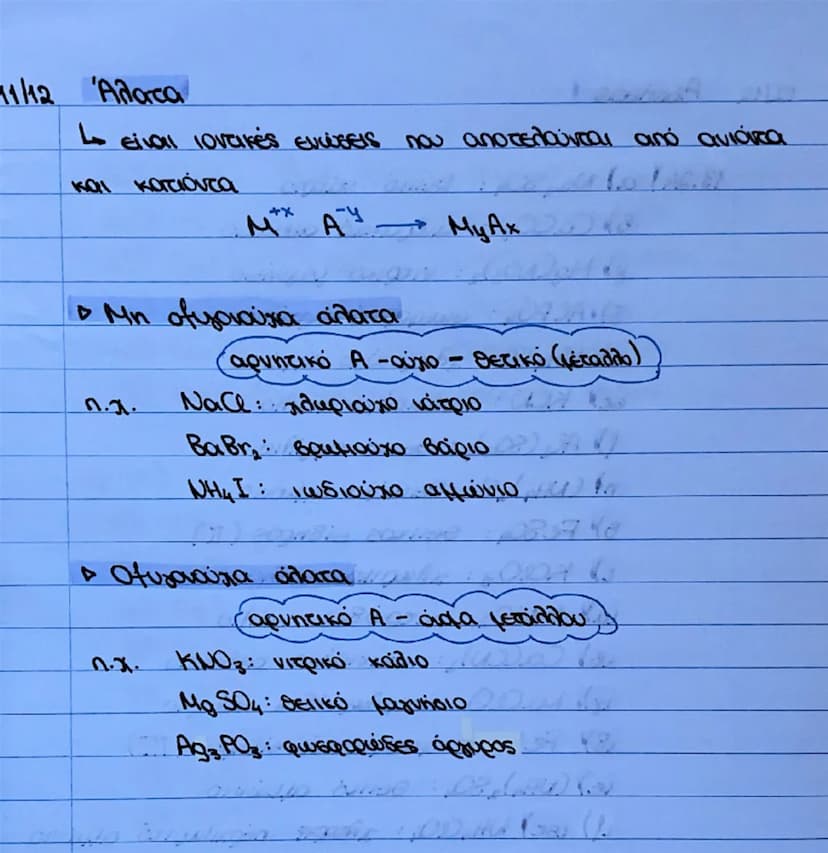 11/12 Άλατα
↳ είναι ιοντικές ενώσεις που αποτελούνται από ανιόντα
και κατιόντα
M⁺ˣ A⁻ʸ → MyAx
▷ Μη οξυγονούχα άλατα
αρνητικό A - ούχο - θετικό (μέταλλο)
π.χ. NaCl: χλωριούχο νάτριο
BaBr₂: βρωμιούχο βάριο
NH₄I: ιωδιούχο αμμώνιο
▷ Οξυγονούχα άλατα
αρνητικό A - όνομα μετάλλου
π.χ. KNO₃: νιτρικό κάλιο
MgSO₄: θειικό μαγνήσιο
Ag₃PO₃: φωσφορώδες άργυρος